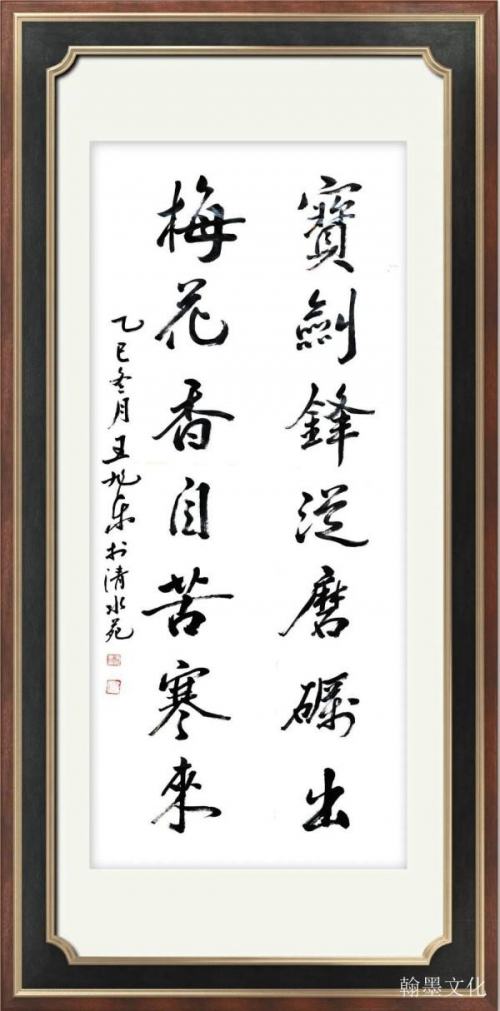 寶劍鋒從磨礪出
梅花香自苦寒來
乙巳冬月王旭東书清水苑
翰墨文化